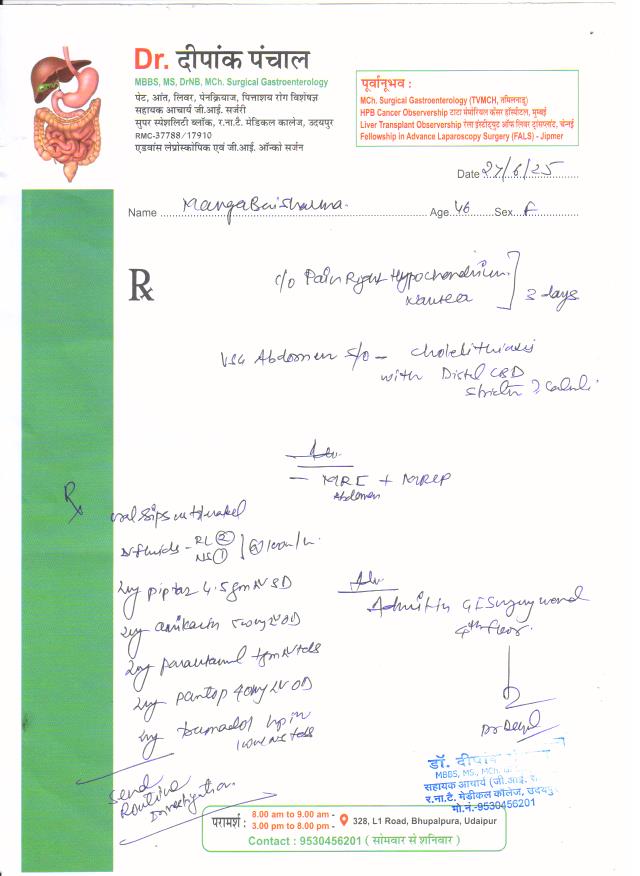 Dr. दीपांक पंचाल
MBBS, MS, DrNB, MCh. Surgical Gastroenterology
पेट, आंत, लिवर, पेनक्रियाज, पित्ताशय रोग विशेषज्ञ
सहायक आचार्य जी.आई. सर्जरी
सुपर स्पेशलिटी ब्लॉक, र.ना.टै. मेडिकल कालेज, उदयपुर
RMC-37788 / 17910
एडवांस लेप्रोस्कोपिक एवं जी.आई. ऑन्को सर्जन
पूर्वानुभव :
MCh. Surgical Gastroenterology (TVMCH, तमिलनाडु)
HPB Cancer Observership टाटा मेमोरियल कैंसर हॉस्पिटल, मुम्बई
Liver Transplant Observership रेला इंस्टीट्यूट ऑफ लिवर ट्रांसप्लांट, चेन्नई
Fellowship in Advance Laparoscopy Surgery (FALS) - Jipmer
Date 27/6/25
Name Manga Bai Sharma Age 46 Sex F
Rx
c/o Pain Right Hypochondrium
Nausea
3 days
USG Abdomen s/o - Cholelithiasis
with Distal CBD
Stricture ? Calculi
Adv
- MRI + MRCP
Abdomen
Rx
oral sips
IV fluids - RL (2)
NS (1)
@ 100ml/hr
Inj piptaz 4.5gm IV
Inj amikacin 500mg IV OD
Inj paracetamol 1gm IV tds
Inj pantop 40mg IV OD
Inj tramadol
100ml NS tds
Adv
Admit in GI Surgery ward
4th floor.
Send
Routine
Investigation.
डॉ. दीपांक
MBBS, MS., MCh.
सहायक आचार्य (जी.आई.
र.ना.टै. मेडीकल कॉलेज, उदयपुर
मो.नं.-9530456201
परामर्श :
8.00 am to 9.00 am -
3.00 pm to 8.00 pm -
328, L1 Road, Bhupalpura, Udaipur
Contact : 9530456201 ( सोमवार से शनिवार )